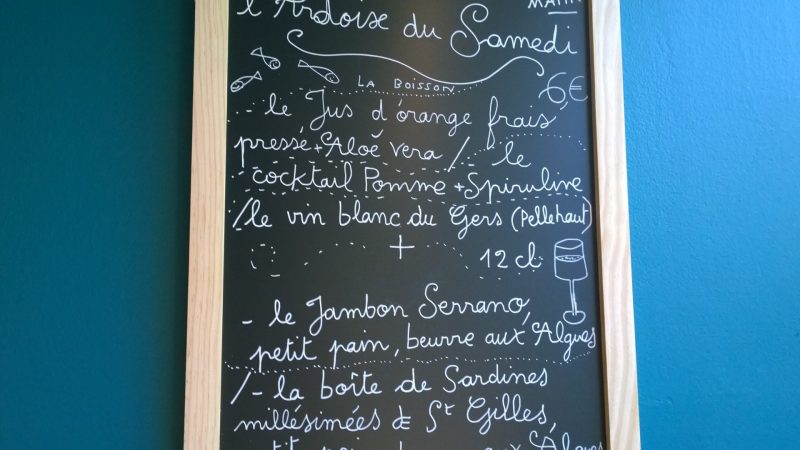 l'Ardoise du Samedi
LA BOISSON
6€
- le Jus d'orange frais
pressé + Aloë vera / le
cocktail Pomme + Spiruline
/ le vin blanc du Gers (Pellehaut)
+
12 cl
- le Jambon Serrano,
petit pain, beurre aux Algues
/ - la boîte de Sardines
millésimées de St Gilles,
aux Algues